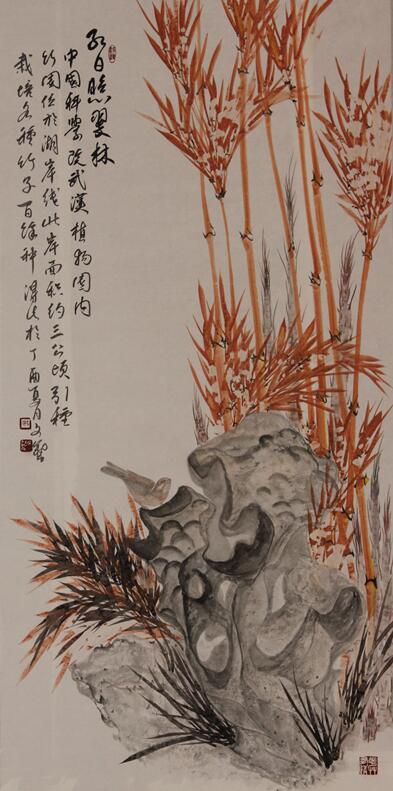 红日照翠林
中国科学院武汉植物园内
竹园位於湖岸线此岸面积约三公顷引種
栽培各種竹子百馀种 得法於丁酉夏月文艺